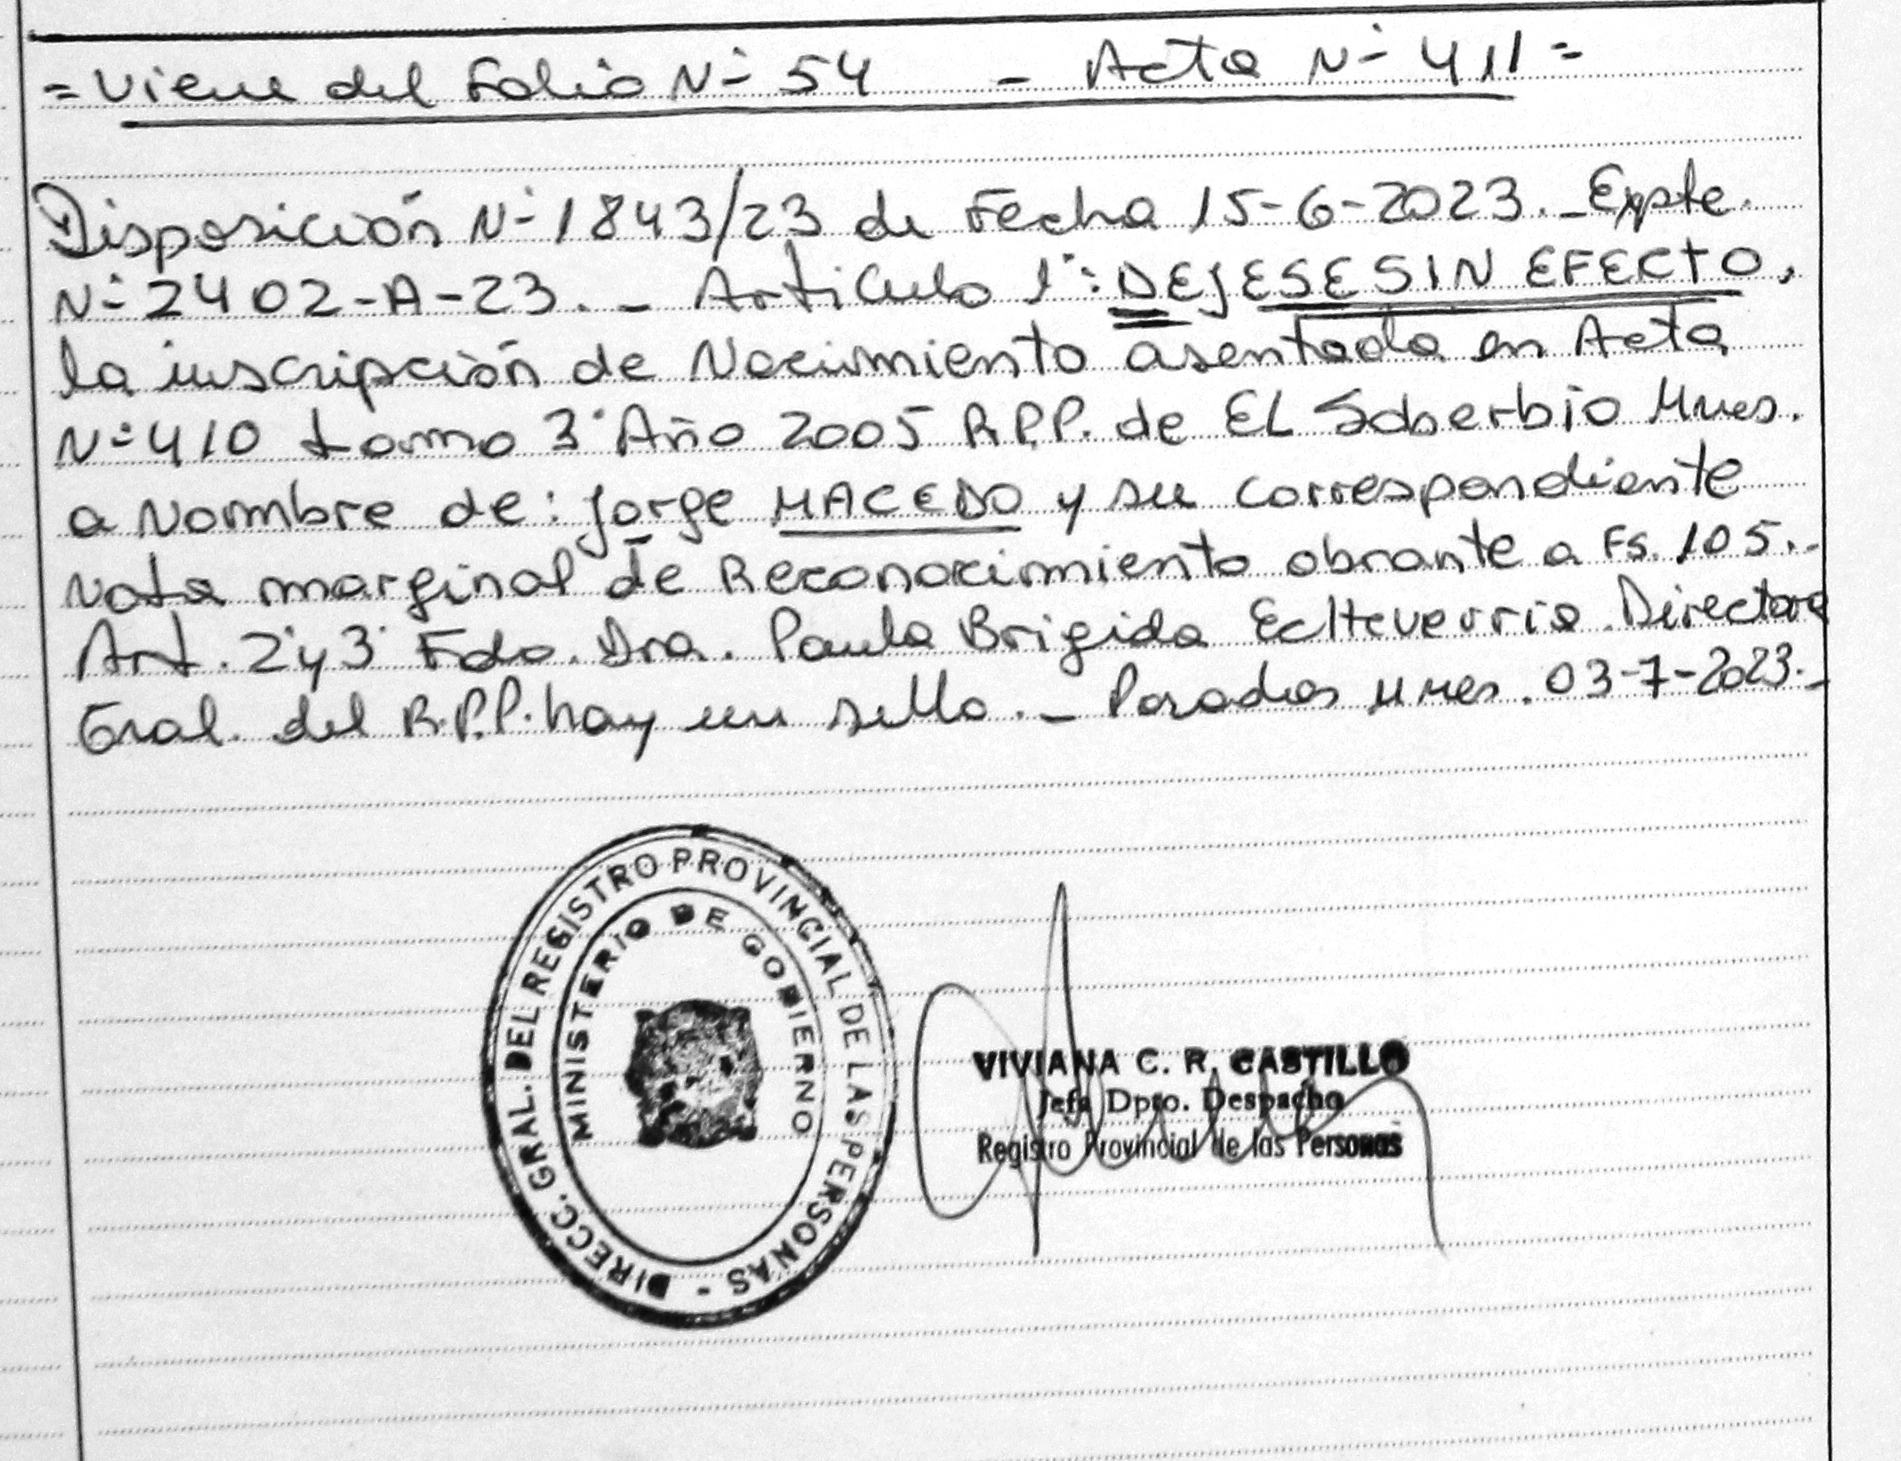 = Viene del Folio Nº 54 - Acta Nº 411 =
Disposición Nº 1843/23 de Fecha 15-6-2023._ Expte.
Nº 2402-A-23._ Articulo 1º: DEJESE SIN EFECTO,
la inscripción de Nacimiento asentada en Acta
Nº 410 tomo 3º Año 2005 R.P.P. de EL Soberbio Mnes.
a Nombre de: Jorge MACEDO y su correspondiente
Nota marginal de Reconocimiento obrante a Fs. 105.-
Art. 2º y 3º Fdo. Dra. Paula Brigida Echeverria Directora
Gral. del R.P.P. hay un sello._ Posadas Mnes. 03-7-2023._
DIRECC. GRAL. DEL REGISTRO PROVINCIAL DE LAS PERSONAS -
MINISTERIO DE GOBIERNO
VIVIANA C. R. CASTILLO
Jefa Dpto. Despacho
Registro Provincial de las Personas